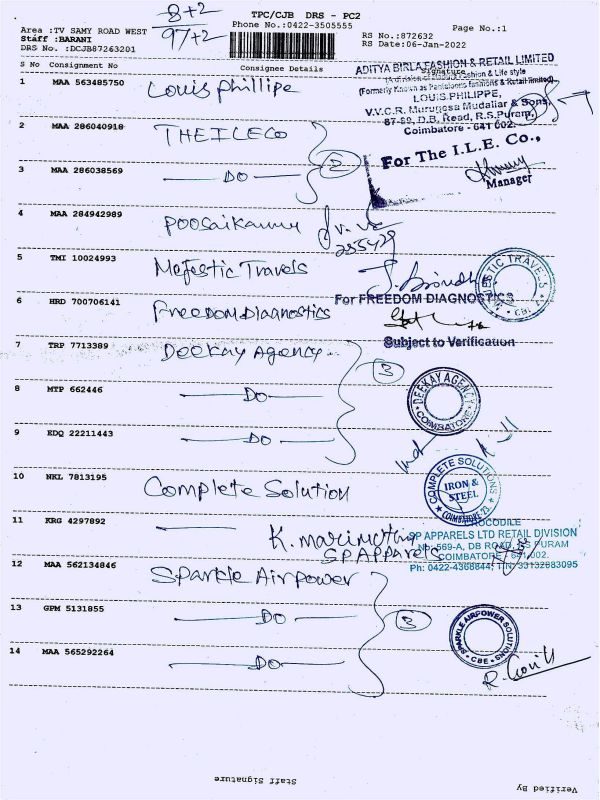 8+2
97+2
TPC/CJB DRS - PC2
Phone No.:0422-3505555
Page No.:1
Area :TV SAMY ROAD WEST
Staff :BARANI
DRS No. :DCJB87263201
RS No.:872632
RS Date:06-Jan-2022
S No Consignment No Consignee Details Signature
1 MAA 563485750 Louis Phillipe
ADITYA BIRLA FASHION & RETAIL LIMITED
(A division of Fashion & Life style
(Formerly Known as Pantaloons fashions & Retail limited)
LOUIS PHILIPPE,
V.V.C.R. Murugesa Mudaliar & Sons,
87-89, D.B. Road, R.S.Puram,
Coimbatore - 641 002.
2 MAA 286040918 THE ILECO
For The I.L.E. Co.,
Manager
3 MAA 286038569 DO
2
4 MAA 284942989 Poosaikannu
5 TMI 10024993 Mejestic Travels
MAJESTIC TRAVELS
CBE
6 HRD 700706141 Freedom Diagnostics
For FREEDOM DIAGNOSTICS
Subject to Verification
7 TRP 7713389 Deekay Agency
8 MTP 662446 DO
3
DEEKAY AGENCY
COIMBATORE
9 EDQ 22211443 DO
10 NKL 7813195 Complete Solution
COMPLETE SOLUTIONS
IRON &
STEEL
COIMBATORE 23
11 KRG 4297892
K. marimuthu
SP Apparels
CROCODILE
SP APPARELS LTD RETAIL DIVISION
No 569-A, DB ROAD, RS PURAM
COIMBATORE 641 002.
Ph: 0422-4368844, TIN: 33132683095
12 MAA 562134846 Sparkle Airpower
13 GPM 5131855 DO
3
SPARKLE AIRPOWER SOLUTIONS
CBE
14 MAA 565292264 DO
Staff Signature
Verified By